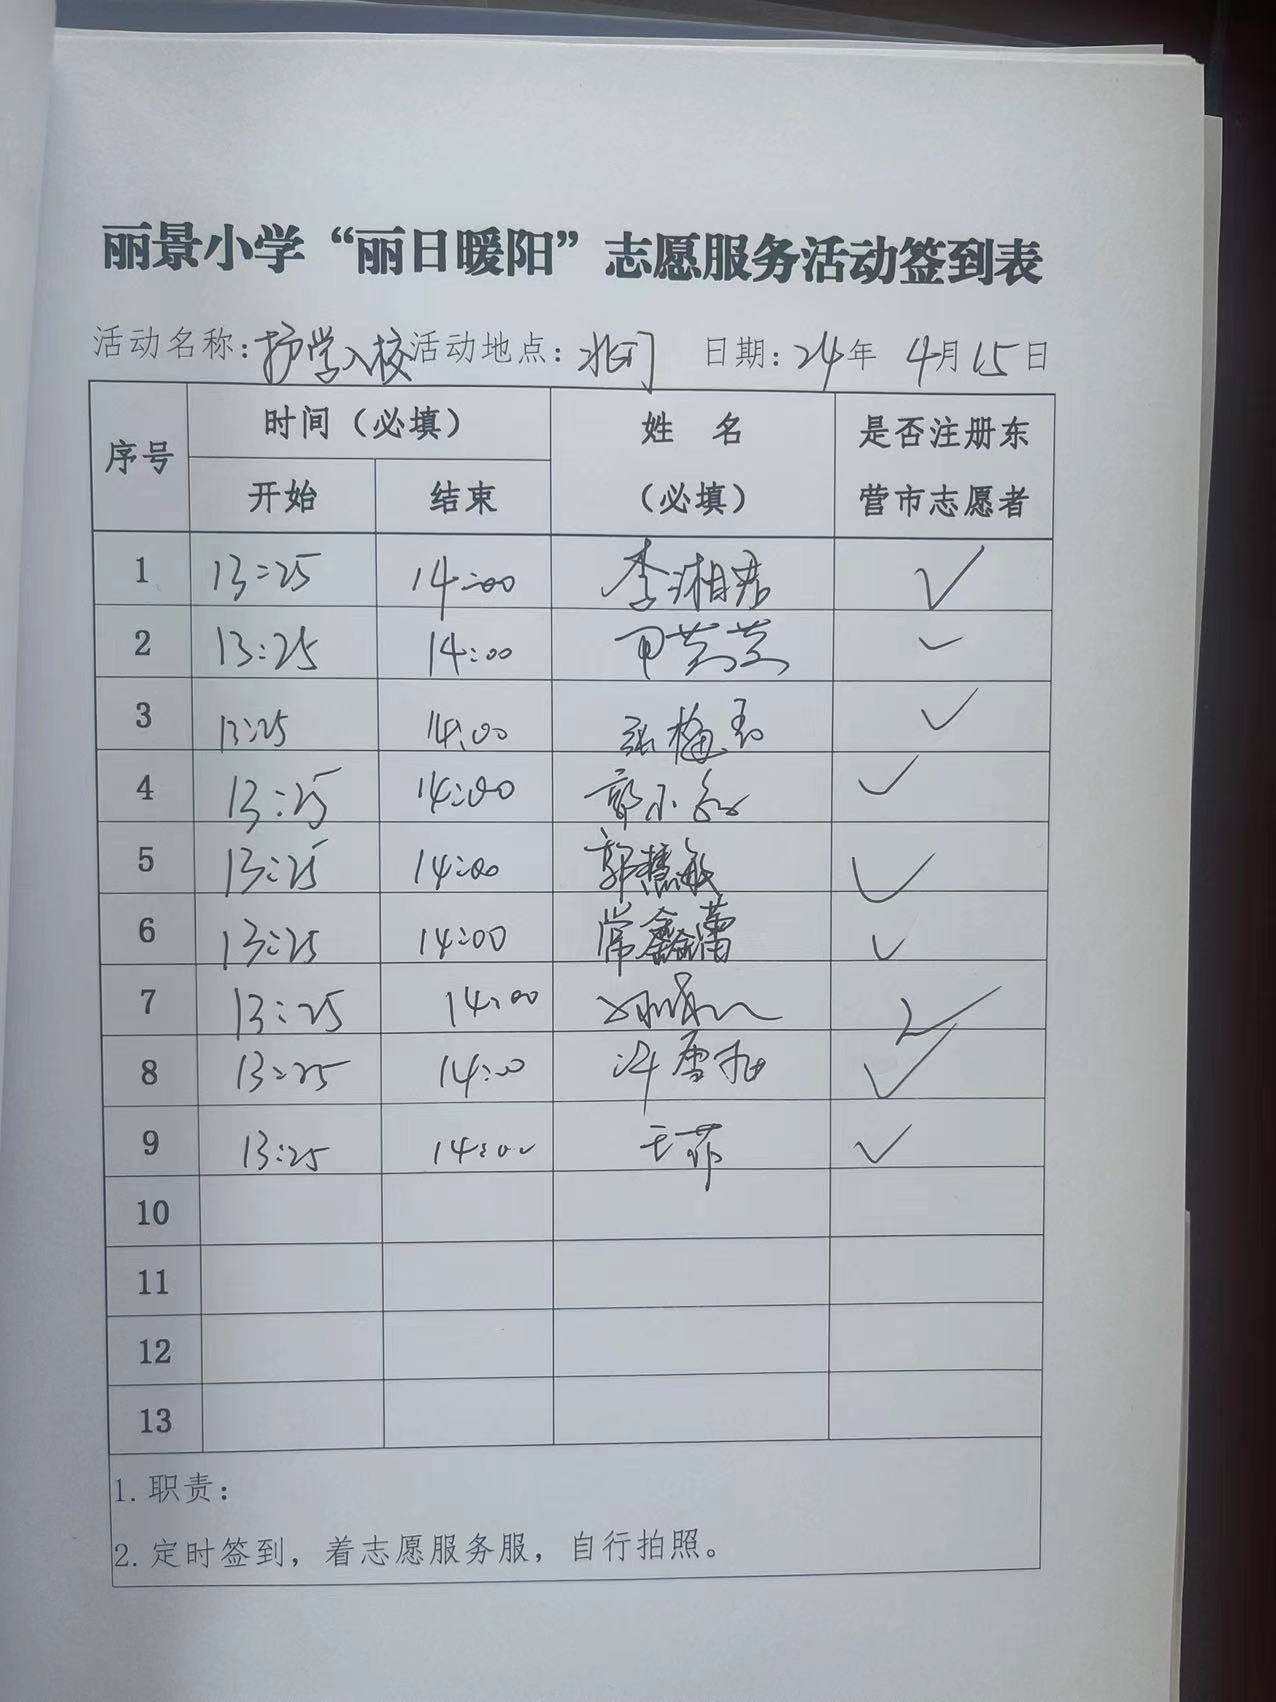 丽景小学“丽日暖阳”志愿服务活动签到表
活动名称：护学入校 活动地点：北门 日期：24年 4月15日
序号 时间（必填） 姓 名 是否注册东
开始 结束 （必填） 营市志愿者
1 13:25 14:00 李湘君 ✓
2 13:25 14:00 ✓
3 13:25 14:00 张梅 ✓
4 13:25 14:00 郭小 ✓
5 13:25 14:00 郭慧敏 ✓
6 13:25 14:00 常鑫蕾 ✓
7 13:25 14:00 ✓
8 13:25 14:00 雪 ✓
9 13:25 14:00 王菲 ✓
10
11
12
13
1.职责：
2.定时签到，着志愿服务服，自行拍照。